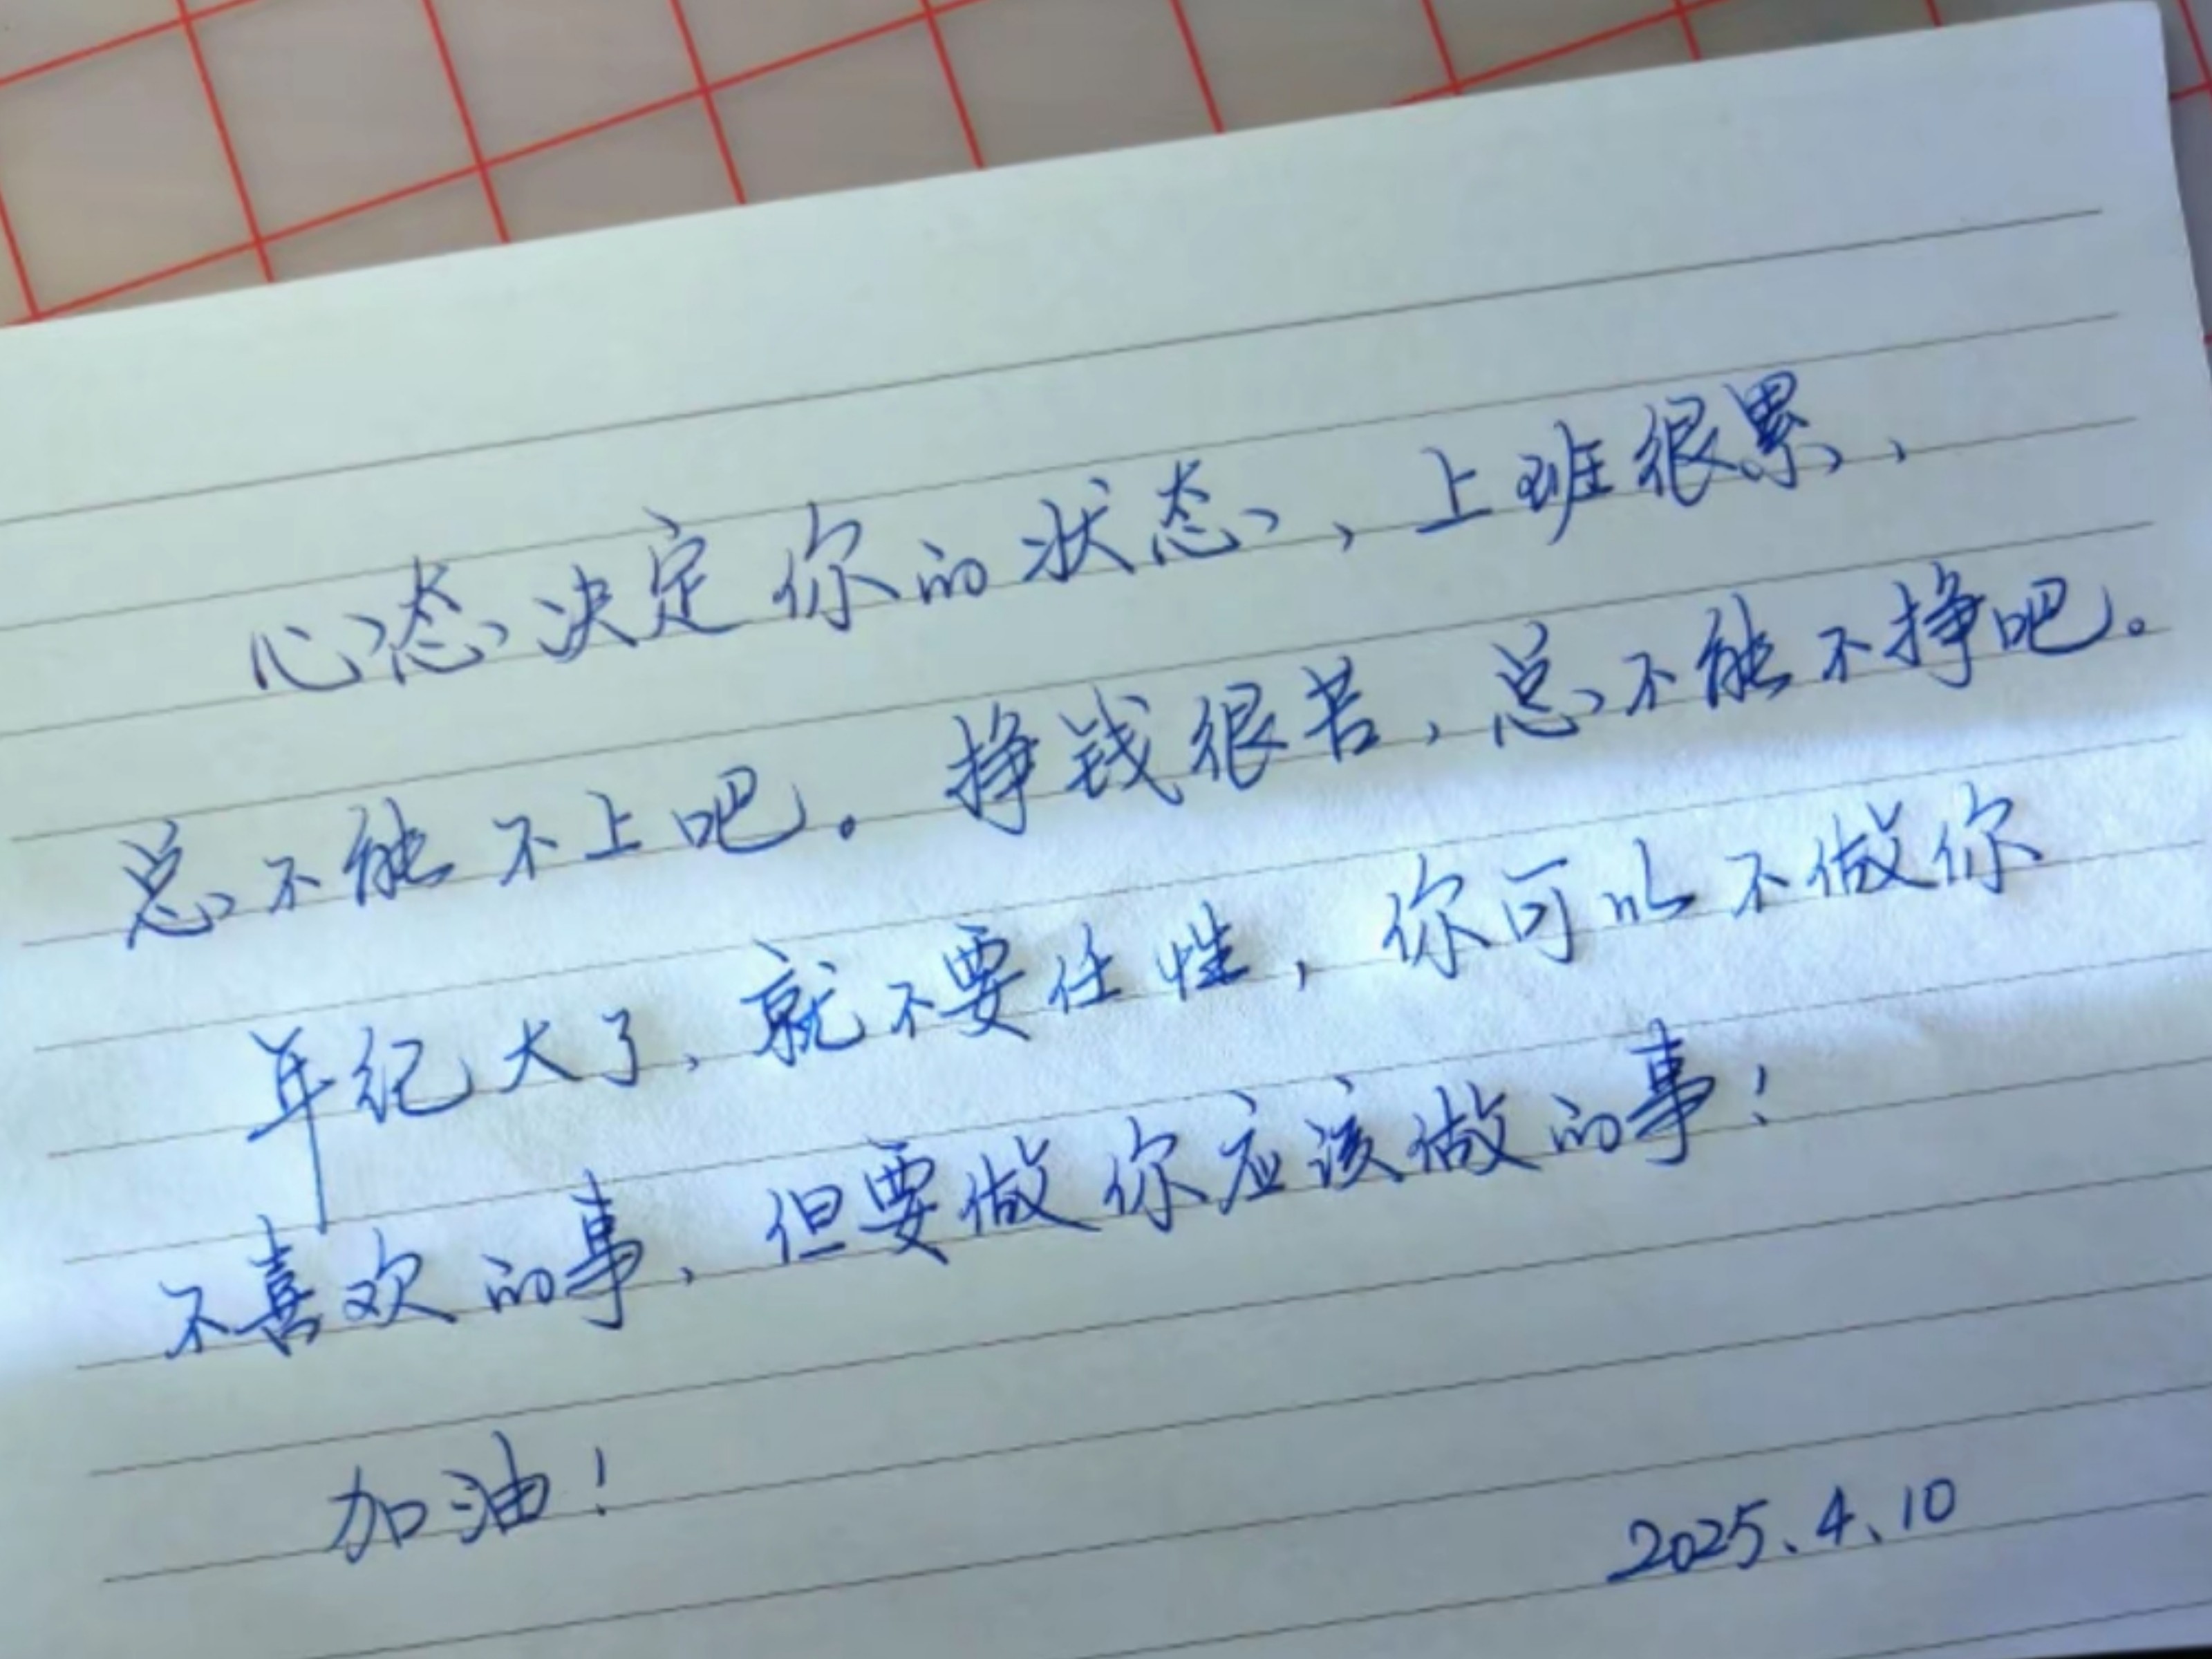 心态决定你的状态，上班很累，
总不能不上吧。挣钱很苦，总不能不挣吧。
年纪大了，就不要任性，你可以不做你
不喜欢的事，但要做你应该做的事！
加油！
2025.4.10